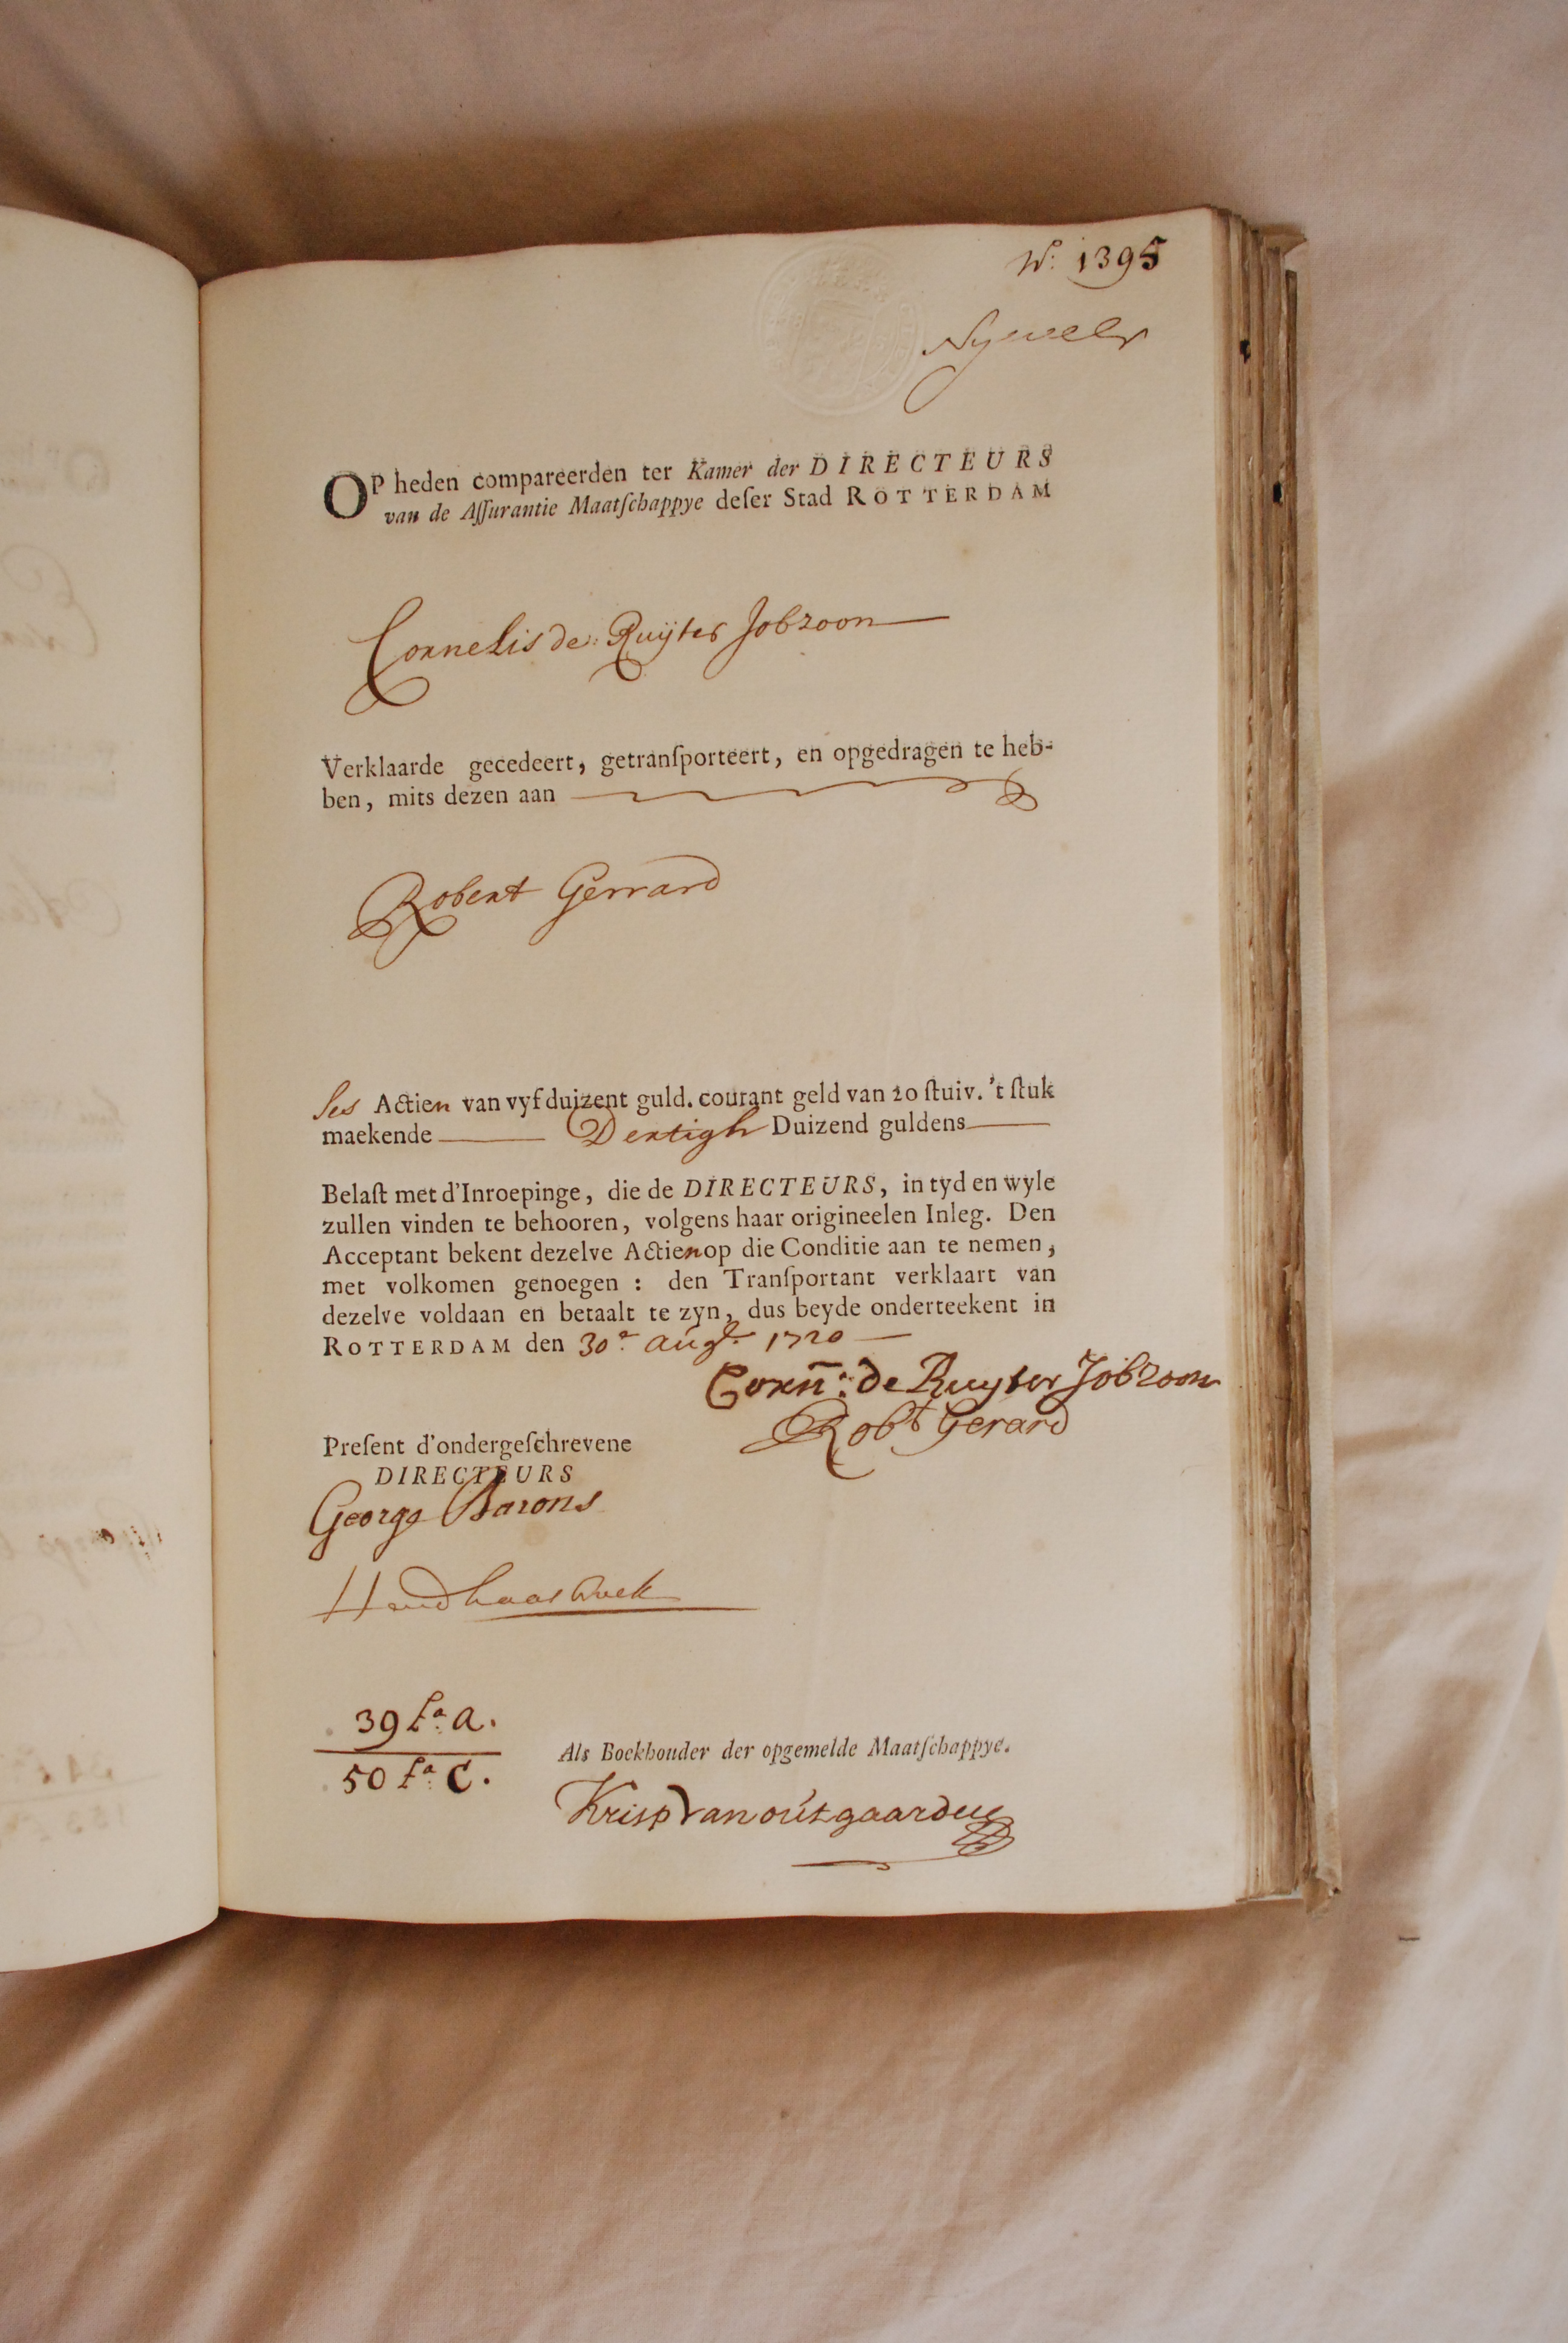 N.º 1395
Nywelr
OP heden compareerden ter Kamer der DIRECTEURS
van de Aſſurantie Maatſchappye deſer Stad ROTTERDAM
Cornelis de Ruÿter Jobzoon
Verklaarde gecedeert, getranſporteert, en opgedragen te heb-
ben, mits dezen aan
Robert Gerrard
ses Actien van vyf duizent guld. courant geld van 20 ſtuiv. 't ſtuk
maekende Dertigh Duizend guldens
Belaſt met d'Inroepinge, die de DIRECTEURS, in tyd en wyle
zullen vinden te behooren, volgens haar origineelen Inleg. Den
Acceptant bekent dezelve Actien op die Conditie aan te nemen,
met volkomen genoegen : den Tranſportant verklaart van
dezelve voldaan en betaalt te zyn, dus beyde onderteekent in
ROTTERDAM den 30.e augt. 1720
Corn.s: de Ruyter Jobzoon
Robt Gerard
Preſent d'ondergeſchrevene
DIRECTEURS
George Barons
39 fa. a.
50 fa. C.
Als Boekhouder der opgemelde Maatſchappye.
Krisp van outgaarden